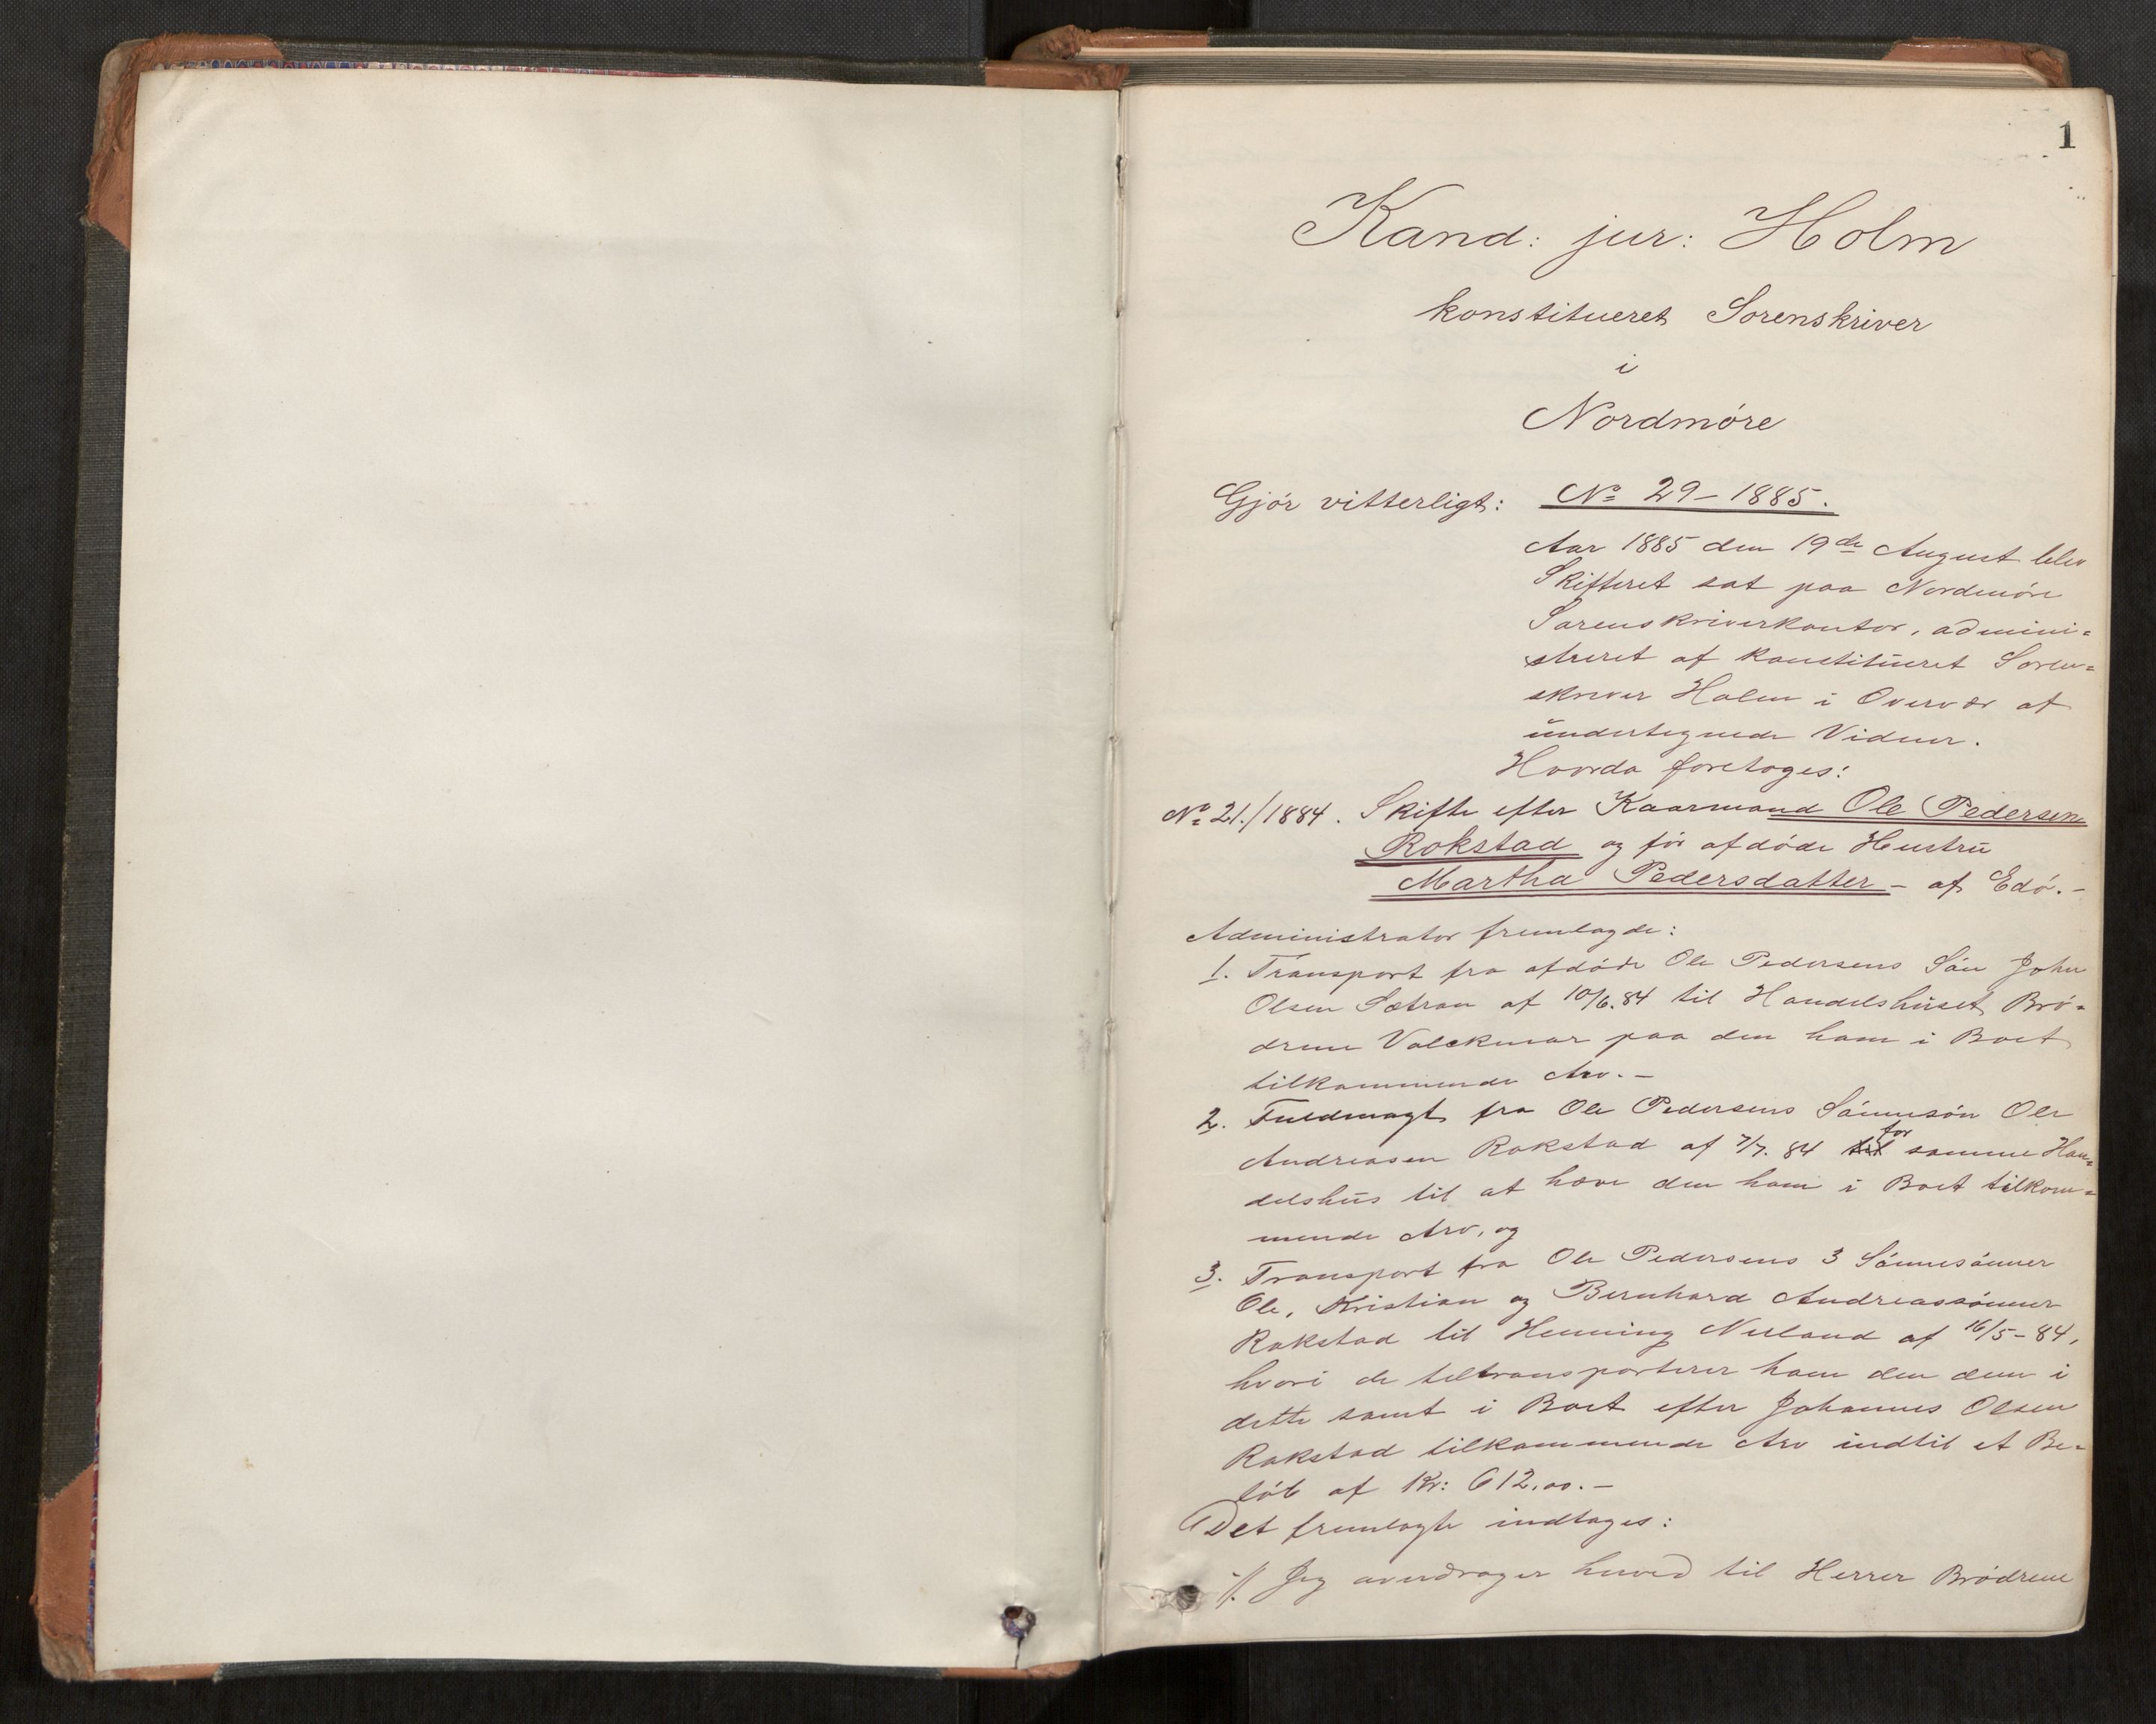 1
Kand: jur: Holm
konstitueret Sorenskriver
i
Nordmøre
Gjør vitterligt: No 29 - 1885.
Aar 1885 den 19de August blev
Skifteret sat paa Nordmøre
Sorenskriverkontor, admini=
streret af konstitueret Soren=
skriver Holm i Overvær af
undertegnede Vidner.
Hvorda foretoges:
No 21./1884. Skifte efter Kaarmand Ole Pedersen
Rokstad og før afdøde Hustru
Martha Pedersdatter - af Edø. -
Administrator fremlagde:
1. Transport fra afdøde Ole Pedersens Søn John
Olsen Sætran af 10/6. 84 til Handelshuset Brø=
drene Volckmar paa den ham i Boet
tilkommende Arv. -
2. Fuldmagt fra Ole Pedersens Sønnesøn Ole
Andreasen Rokstad af 7/7. 84 for samme Han=
delshus til at hæve den ham i Boet tilkom=
mende Arv, og
3. Transport fra Ole Pedersens 3 Sønnesønner
Ole, Kristian og Bernhard Andreassønner
Rokstad til Henning Neeland af 16/5 - 84,
hvori de tiltransporterer ham den dem i
dette samt i Boet efter Johannes Olsen
Rokstad tilkommende Arv indtil et Be=
løb af Kr: 612,00. -
Det fremlagte indtages:
1/. Jeg overdrager herved til Herrer Brødrene